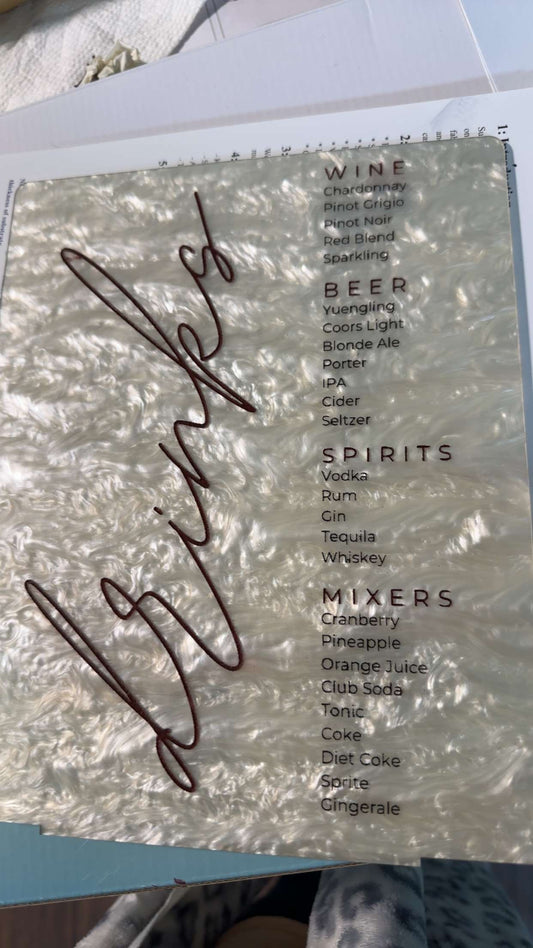 drinks
WINE
Chardonnay
Pinot Grigio
Pinot Noir
Red Blend
Sparkling
BEER
Yuengling
Coors Light
Blonde Ale
Porter
IPA
Cider
Seltzer
SPIRITS
Vodka
Rum
Gin
Tequila
Whiskey
MIXERS
Cranberry
Pineapple
Orange Juice
Club Soda
Tonic
Coke
Diet Coke
Sprite
Gingerale